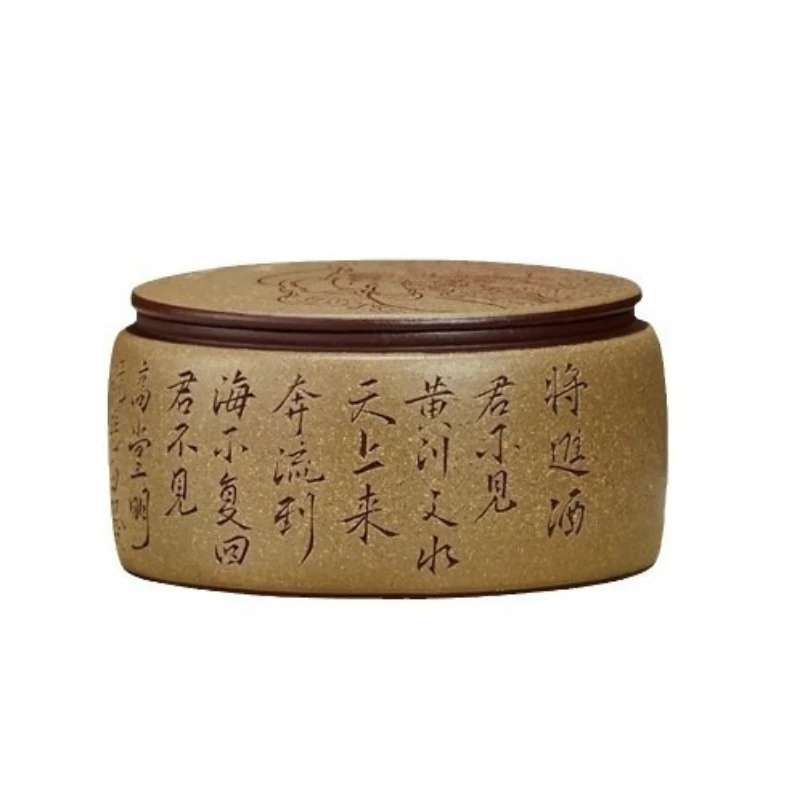 将進酒
君不見
黄河之水
天上来
奔流到
海不复回
君不見
高堂明